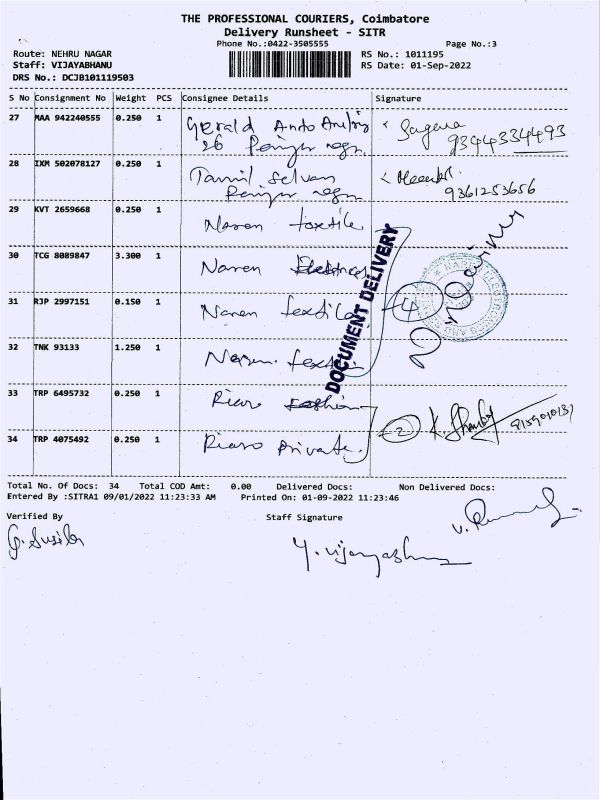 THE PROFESSIONAL COURIERS, Coimbatore
Delivery Runsheet - SITR
Phone No.:0422-3505555
Page No.:3
Route: NEHRU NAGAR
Staff: VIJAYABHANU
DRS No.: DCJB101119503
RS No.: 1011195
RS Date: 01-Sep-2022
S No Consignment No Weight PCS Consignee Details Signature
27 MAA 942240555 0.250 1 Gerald Anto
26
9394334493
28 IXM 502078127 0.250 1 Tamil Selvan
9361253656
29 KVT 2659668 0.250 1 Naren textile
30 TCG 8089847 3.300 1 Naren
31 RJP 2997151 0.150 1 Naren textile
4
32 TNK 93133 1.250 1 Naren
33 TRP 6495732 0.250 1 Fashion
2
34 TRP 4075492 0.250 1 Private
DOCUMENT DELIVERY
Total No. Of Docs: 34 Total COD Amt: 0.00 Delivered Docs: Non Delivered Docs:
Entered By :SITRA1 09/01/2022 11:23:33 AM Printed On: 01-09-2022 11:23:46
Verified By
Staff Signature
G. Susila
Y. Vijayabhanu